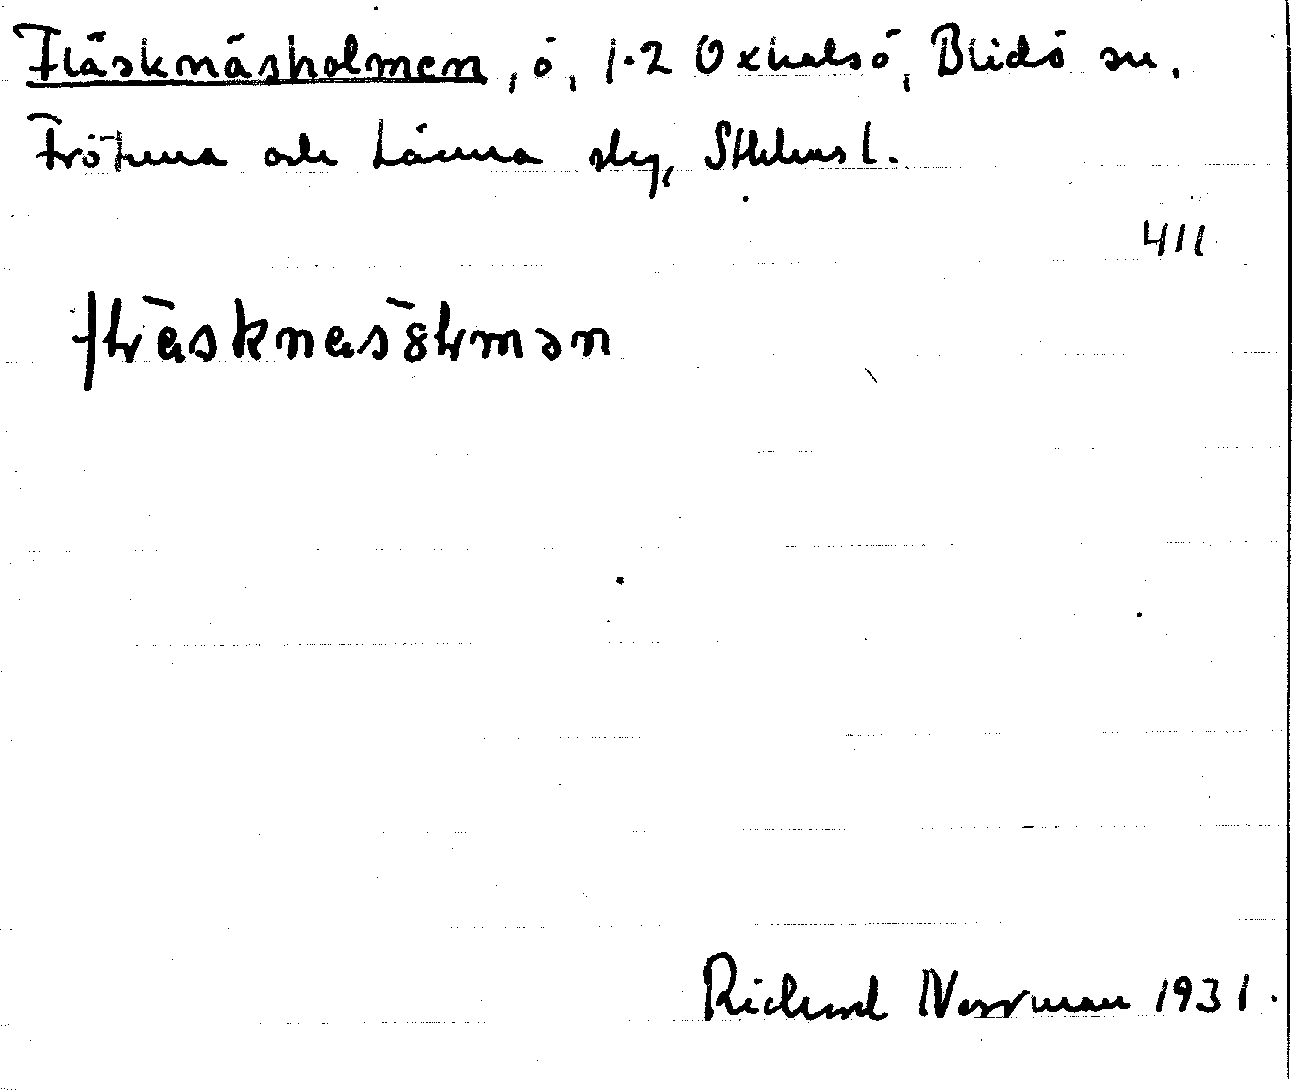 Fläsknäsholmen, ö, 1.2 Oxhalsö, Blidö sn.
Frötuna och Länna slg, Sthlms l.
411
Richard Norrman 1931.